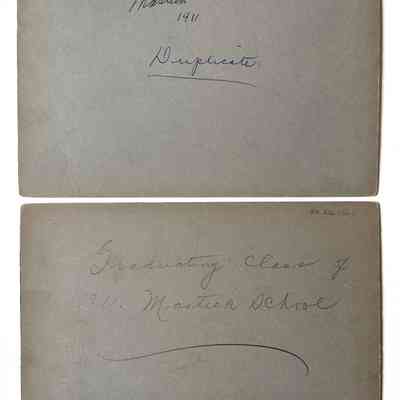 Mastick
1911
Duplicate.
Graduating Class of
Mastick School